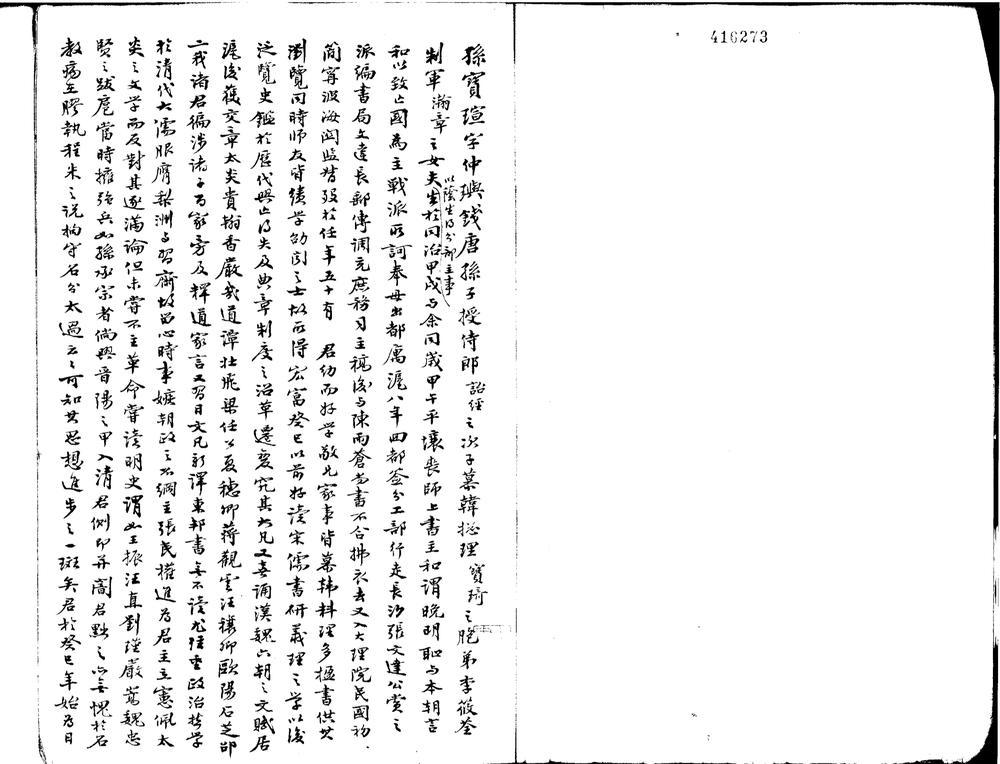 416273
孫寶瑄字仲璵錢唐孫子授侍郎詒經之次子慕韓總理寶琦之胞弟李筱荃
制軍瀚章之女夫以蔭生得分部主事生於同治甲戌与余同歲甲午平壤喪師上書主和謂晚明恥与本朝言
和以致亡國為主戰派所訶奉母出都寓滬八年回部簽分工部行走長沙張文達公賞之
派編書局文達長郵傳調充庶務司主稿後与陳雨蒼尚書不合拂衣去又入大理院民國初
簡寧波海關監督歿於任年五十有 君幼而好学敬兄家事皆慕韩料理多搵書供其
瀏覽同時师友皆績学劬闻之士故所得宏富癸巳以前好读宋儒書研義理之学以後
泛覽史鑑於歷代興亡得失及典章制度之沿革遷变究其大凡又喜诵漢魏六朝之文賦居
滬後獲交章太炎貴翰香嚴幾道譚壮飛梁任公夏穗卿蔣觀雲汪穰卿歐陽石芝邵
二我诸君徧涉诸子百家旁及釋道家言又習日文凡新譯東邦書無不读尤注重政治哲学
於清代大儒服膺梨洲与習齋故留心時事嫉朝政之不綱主張民權進为君主立憲佩太
炎之文学而反對其逐滿論但未嘗不主革命嘗读明史謂如王振汪直劉瑾嚴嵩魏忠
賢之跋扈當時擁强兵如孫承宗者倘興晋陽之甲入清君側即弄闇君黜之亦無愧於名
教病在膠執程朱之说拘守名分太過云云可知其思想進步之一斑矣君於癸巳年始为日